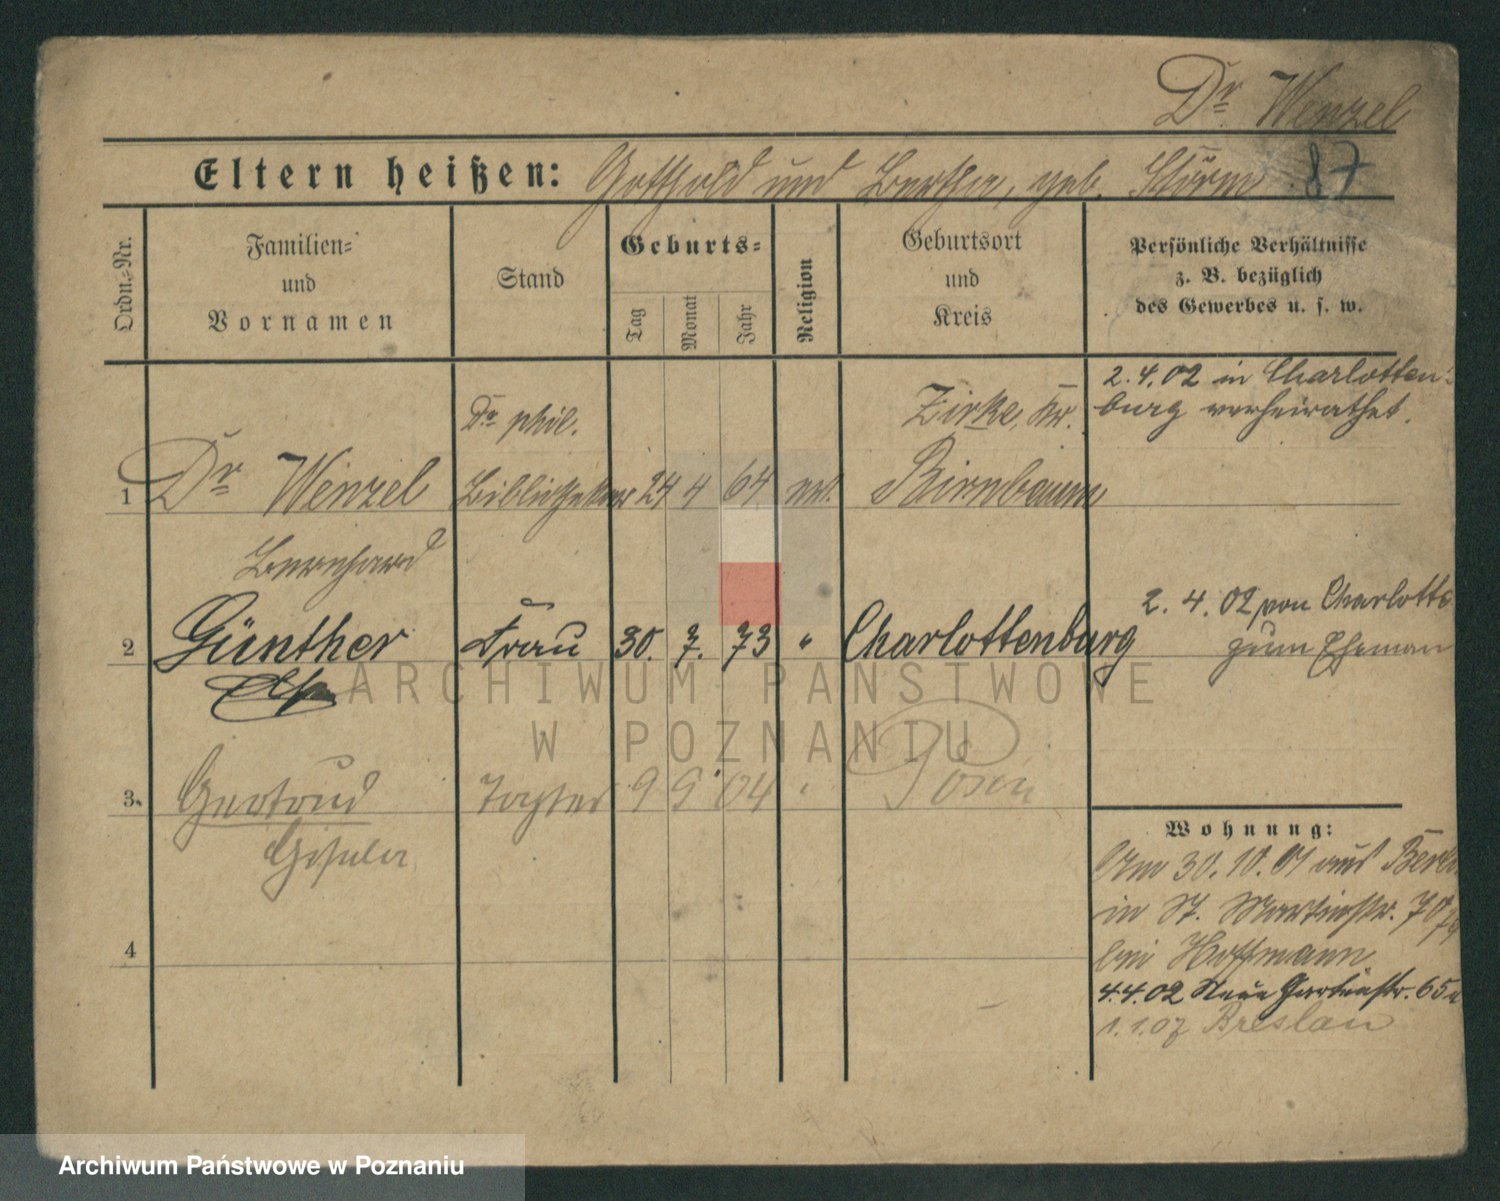 Dr Wenzel
Eltern heißen: Gotthold und Bertha, geb. Störm 87
Ordn.-Nr.
Familien-
und
Vornamen
Stand
Geburts-
Tag
Monat
Jahr
Religion
Geburtsort
und
Kreis
Persönliche Verhältnisse
z. B. bezüglich
des Gewerbes u. s. w.
2.4.02 in Charlotten-
burg verheirathet.
Dr phil. Zirke, Kr.
1 Dr Wenzel Bibliothekar 24 4 64 ev. Birnbaum
Bernhard
2 Günther Frau 30. 7. 73 " Charlottenburg
2. 4. 02 von Charlottb
zum Eheman
ARCHIWUM PAŃSTWOWE
W POZNANIU
3. Gertrud Tochter 9 9 04 " Posen
Gisela
4
Wohnung:
Am 30.10.01 aus Berlin
in St. Martinstr. 70
bei Hoffmann
4.4.02 Neue Gartenstr. 65a
1.1.07 Breslau
Archiwum Państwowe w Poznaniu